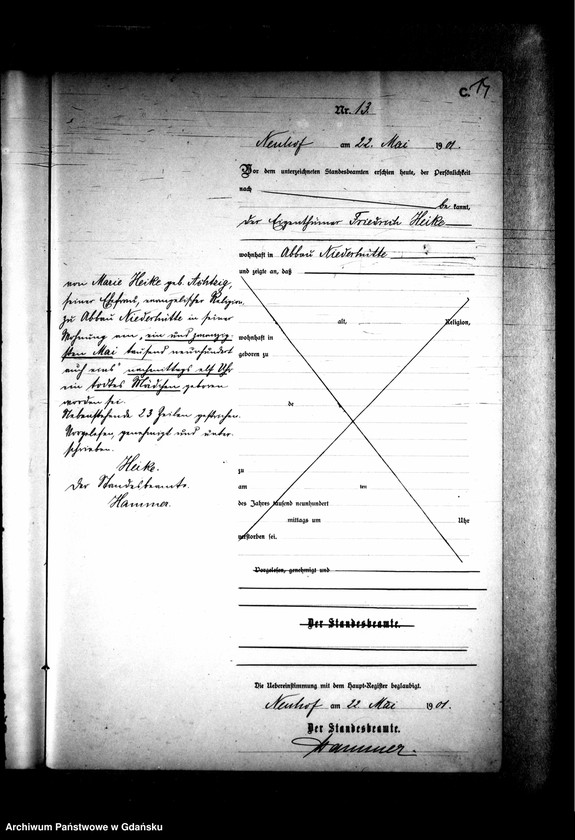 C. 17
Nr. 13.
Neuhof am 22. Mai 1901.
Vor dem unterzeichneten Standesbeamten erschien heute, der Persönlichkeit
nach
be kannt,
der Eigenthümer Friedrich Heike
wohnhaft in Abbau Niederhütte
und zeigte an, daß
von Marie Heike geb. Achtzig,
seiner Ehefrau, evangelischer Religion,
zu Abbau Niederhütte in seiner
Wohnung am, ein und zwanzig-
sten Mai tausend neunhundert
auf eins nachmittags elf Uhr
ein todtes Mädchen geboren
worden sei.
Nebenstehende 23 Zeilen gestrichen.
Vorgelesen, genehmigt und unter-
schrieben.
Heike.
Der Standesbeamte.
Hammer.
alt, Religion,
wohnhaft in
geboren zu
de
zu
am ten
des Jahres tausend neunhundert
mittags um Uhr
verstorben sei.
Vorgelesen, genehmigt und
Der Standesbeamte.
Die Uebereinstimmung mit dem Haupt-Register beglaubigt.
Neuhof am 22. Mai 1901.
Der Standesbeamte.
Hammer.
Archiwum Państwowe w Gdańsku